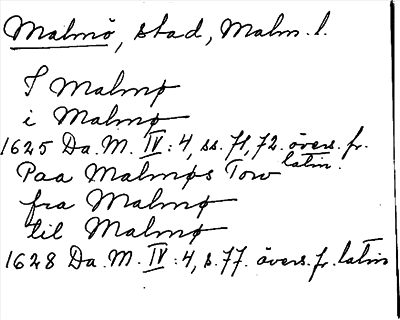 Malmö, stad, Malm. l.
I Malmø
i Malmø
1625 Da. M. IV: 4, ss. 71, 72. övers. fr. latin.
Paa Malmøs Torv
fra Malmø
til Malmø
1628 Da. M. IV: 4, s. 77. övers. fr. latin